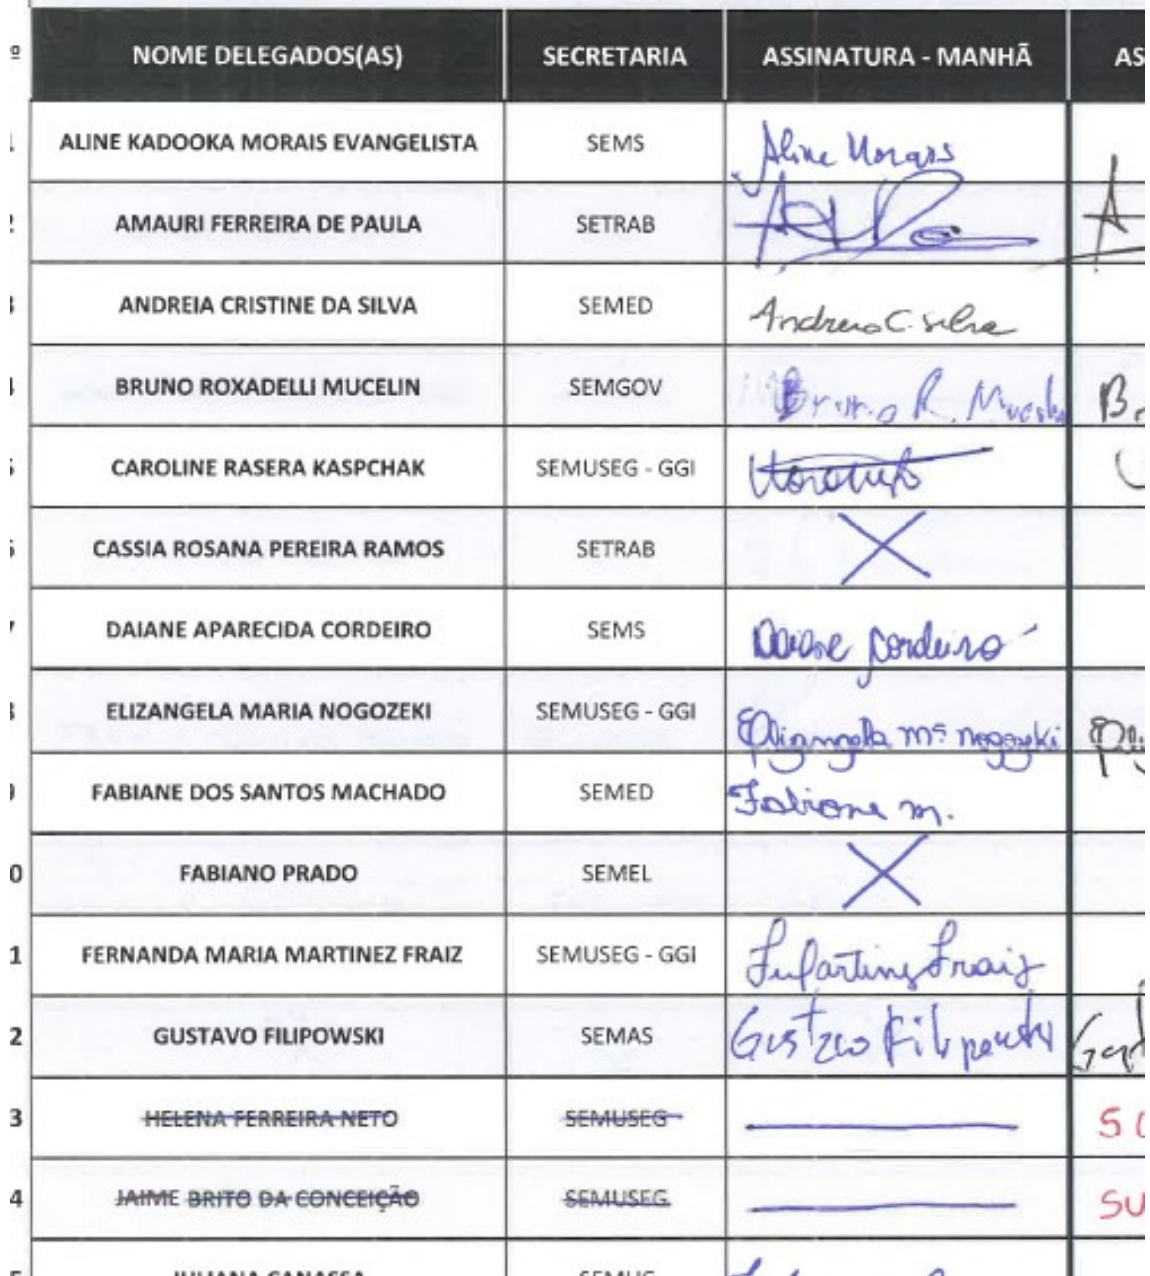 º NOME DELEGADOS(AS) SECRETARIA ASSINATURA - MANHÃ AS
1 ALINE KADOOKA MORAIS EVANGELISTA SEMS Aline Morais
2 AMAURI FERREIRA DE PAULA SETRAB
3 ANDREIA CRISTINE DA SILVA SEMED Andreia C. Silva
4 BRUNO ROXADELLI MUCELIN SEMGOV Bruno R. Mucelin B
5 CAROLINE RASERA KASPCHAK SEMUSEG - GGI
6 CASSIA ROSANA PEREIRA RAMOS SETRAB X
7 DAIANE APARECIDA CORDEIRO SEMS Daiane Cordeiro
8 ELIZANGELA MARIA NOGOZEKI SEMUSEG - GGI Elizangela Mª Nogozeki
9 FABIANE DOS SANTOS MACHADO SEMED Fabiane M.
0 FABIANO PRADO SEMEL X
1 FERNANDA MARIA MARTINEZ FRAIZ SEMUSEG - GGI Fraiz
2 GUSTAVO FILIPOWSKI SEMAS Gustavo Filipowski
3 HELENA FERREIRA NETO SEMUSEG
4 JAIME BRITO DA CONCEIÇÃO SEMUSEG SU
5 JULIANA CANASSA SEMUS